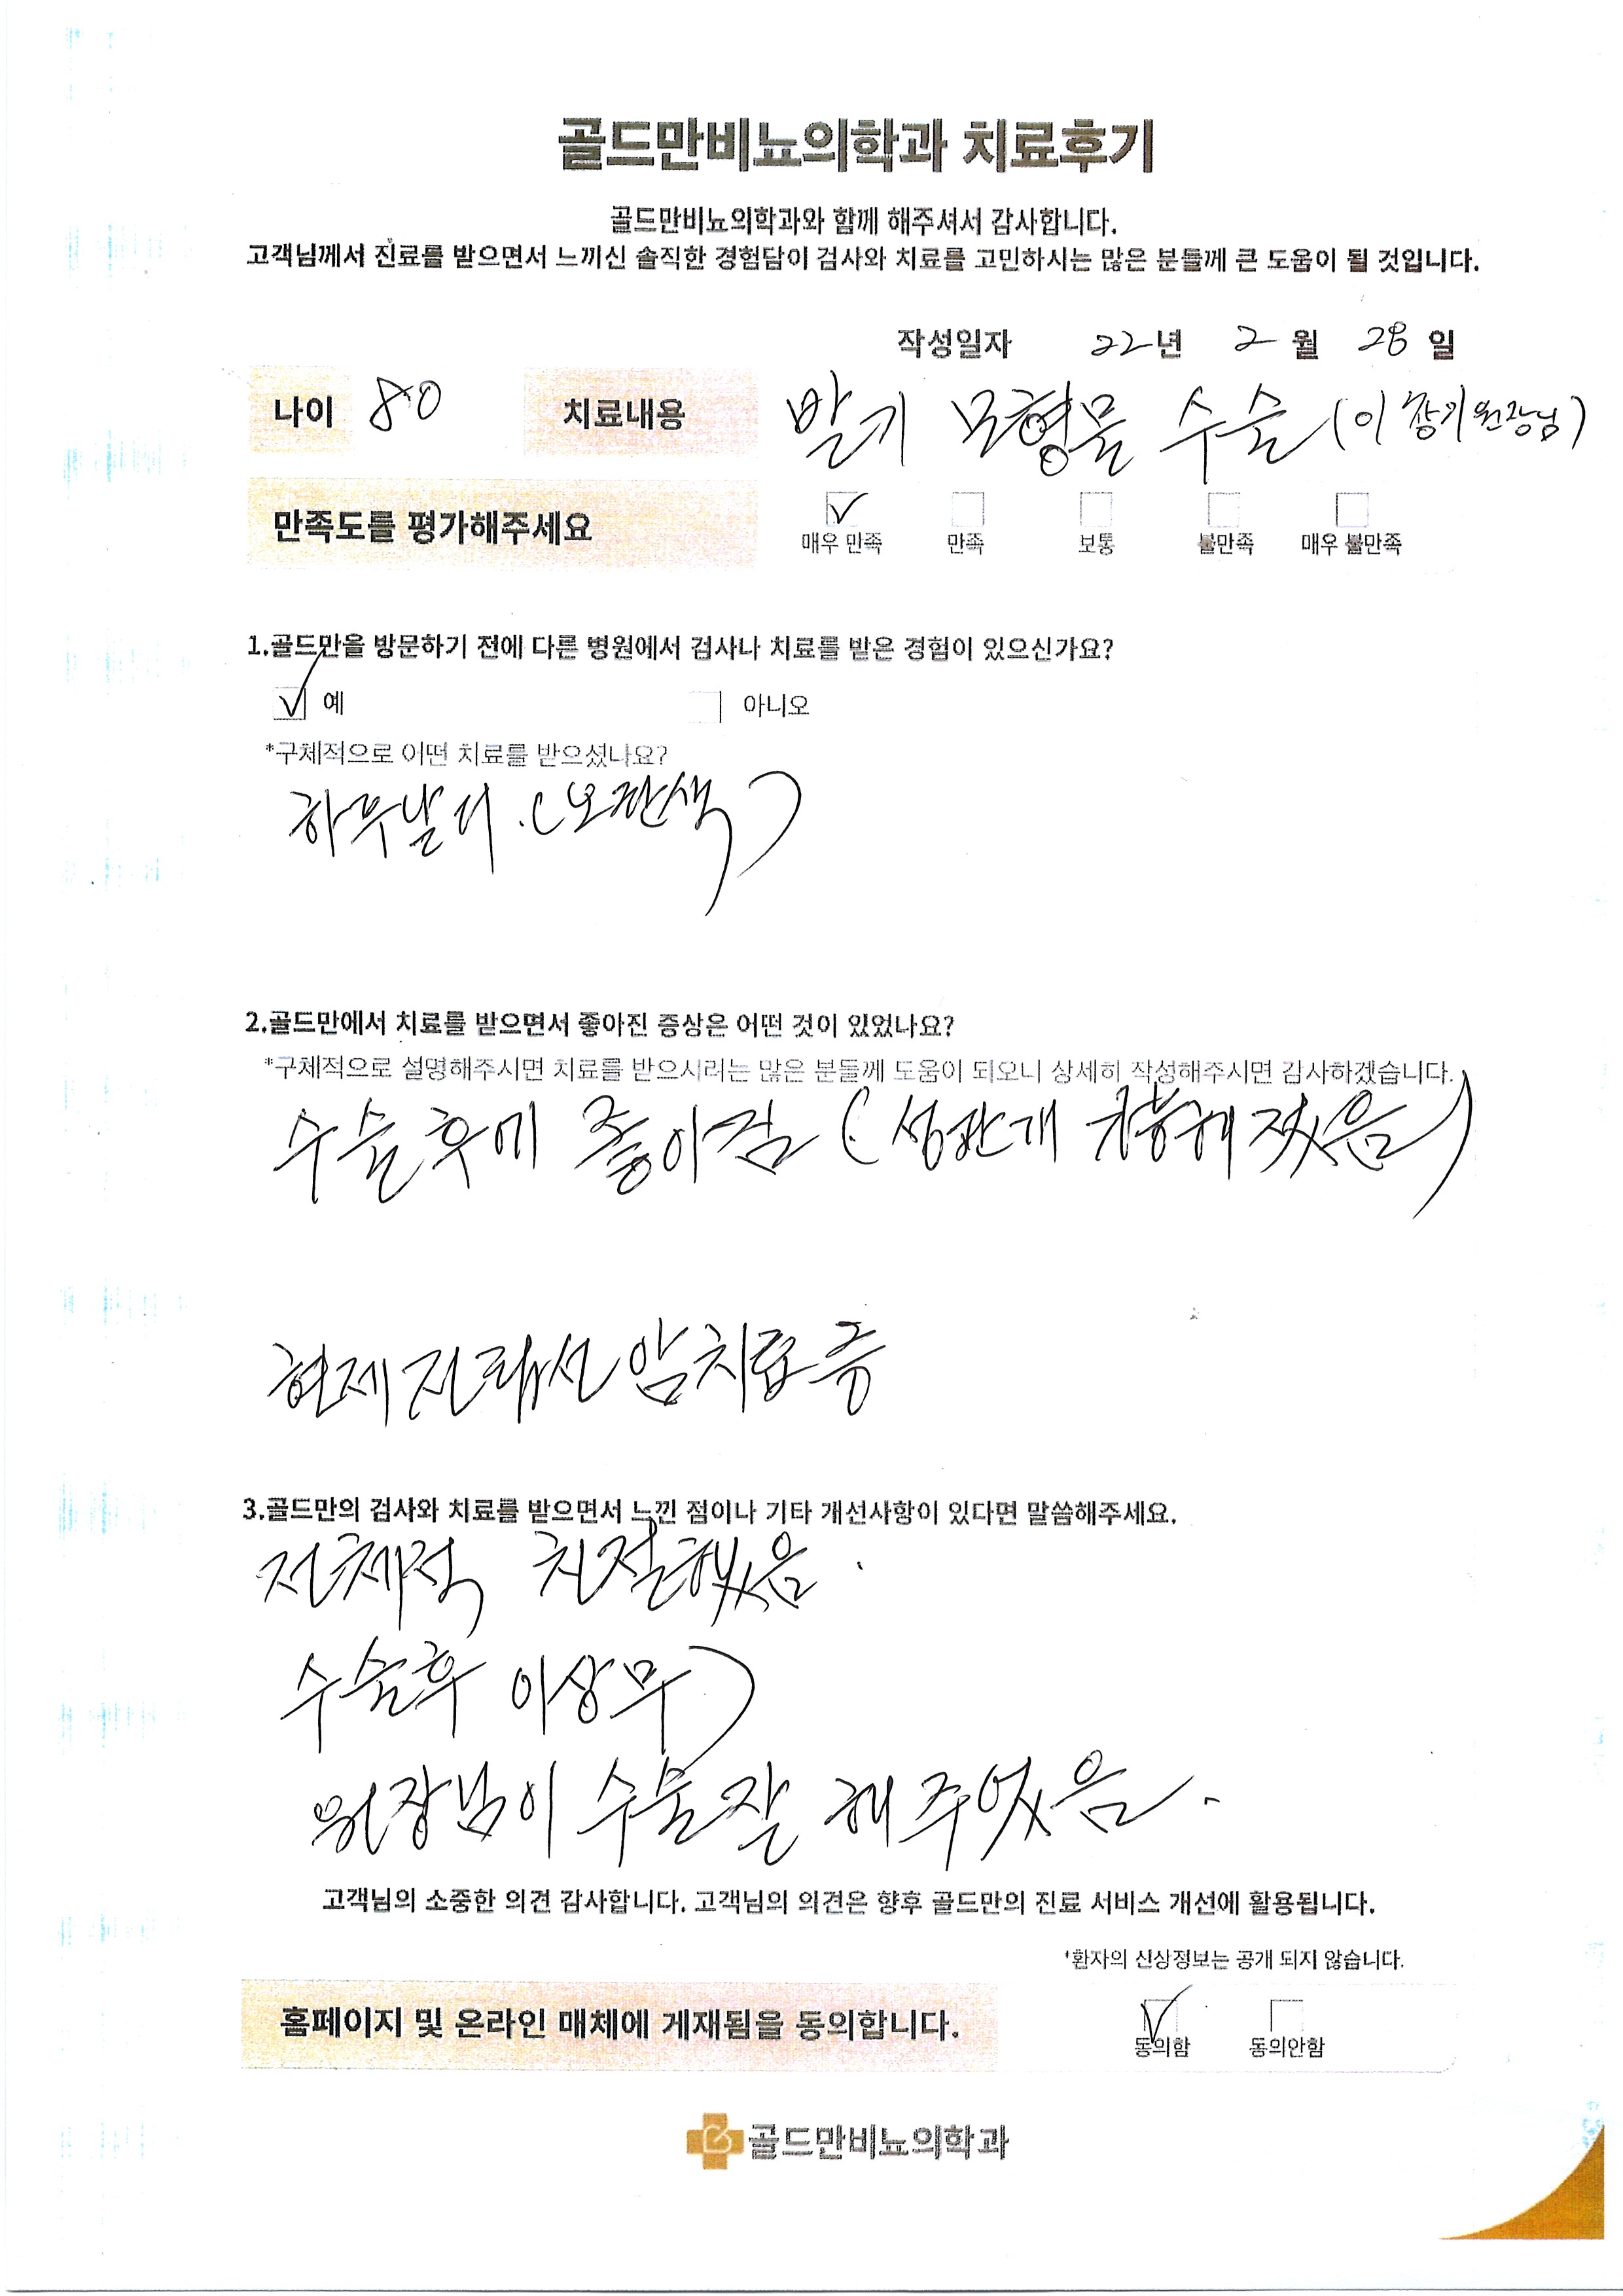 골드만비뇨의학과 치료후기
골드만비뇨의학과와 함께 해주셔서 감사합니다.
고객님께서 진료를 받으면서 느끼신 솔직한 경험담이 검사와 치료를 고민하시는 많은 분들께 큰 도움이 될 것입니다.
작성일자 22년 2월 28일
나이 80 치료내용 발기 모형물 수술 (이창기원장님)
만족도를 평가해주세요 매우 만족 만족 보통 불만족 매우 불만족
1.골드만을 방문하기 전에 다른 병원에서 검사나 치료를 받은 경험이 있으신가요?
예 아니오
*구체적으로 어떤 치료를 받으셨나요?
하무날디.(오랜색)
2.골드만에서 치료를 받으면서 좋아진 증상은 어떤 것이 있었나요?
*구체적으로 설명해주시면 치료를 받으시려는 많은 분들께 도움이 되오니 상세히 작성해주시면 감사하겠습니다.
수술후에 좋아짐 (성관개
현제 전립선 암치료중
3.골드만의 검사와 치료를 받으면서 느낀 점이나 기타 개선사항이 있다면 말씀해주세요.
전체적 친절했음.
수술후 이상무)
원장님이 수술잘 해주었음.
고객님의 소중한 의견 감사합니다. 고객님의 의견은 향후 골드만의 진료 서비스 개선에 활용됩니다.
*환자의 신상정보는 공개 되지 않습니다.
홈페이지 및 온라인 매체에 게재됨을 동의합니다. 동의함 동의안함
골드만비뇨의학과